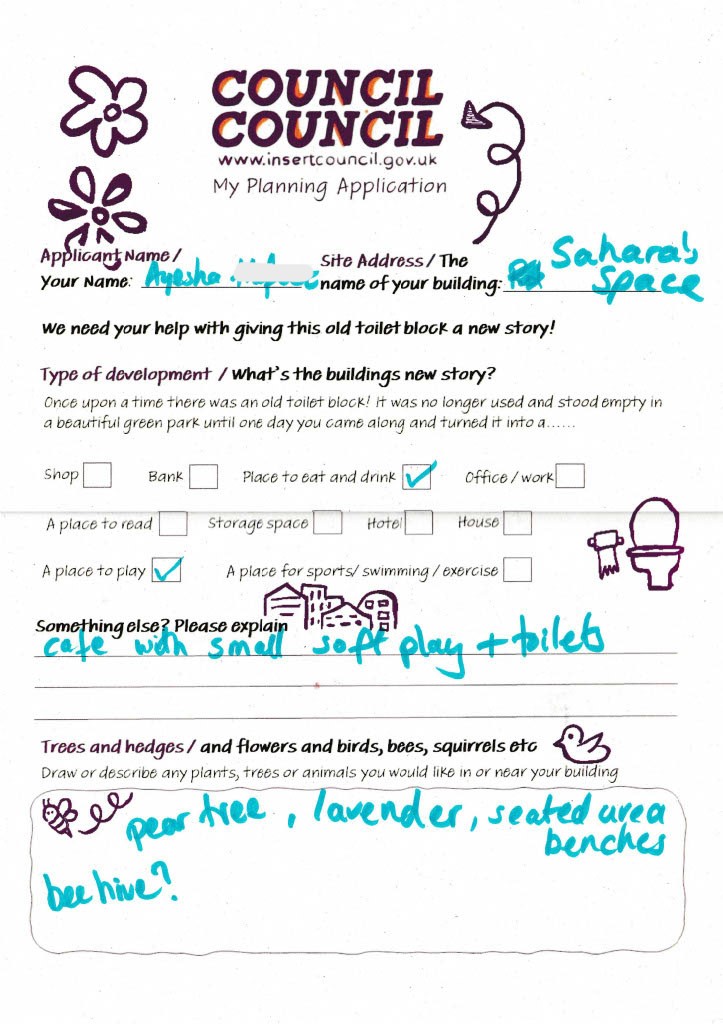 COUNCIL
COUNCIL
www.insertcouncil.gov.uk
My Planning Application
Applicant Name / Site Address / The Sahara's
Your Name: Ayesha name of your building: Space
We need your help with giving this old toilet block a new story!
Type of development / What's the buildings new story?
Once upon a time there was an old toilet block! It was no longer used and stood empty in
a beautiful green park until one day you came along and turned it into a......
Shop Bank Place to eat and drink Office / work
A place to read Storage space Hotel House
A place to play A place for sports/ swimming / exercise
Something else? Please explain
cafe with small soft play + toilets
Trees and hedges / and flowers and birds, bees, squirrels etc
Draw or describe any plants, trees or animals you would like in or near your building
pear tree, lavender, seated area
benches
bee hive?